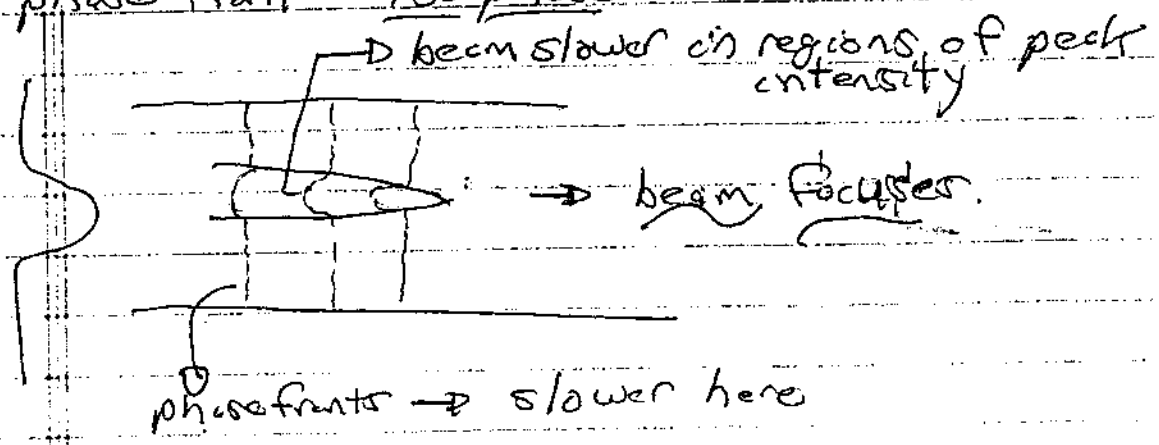 → beam slower in regions of peak
intensity
→ beam focuses.
phasefronts → slower here